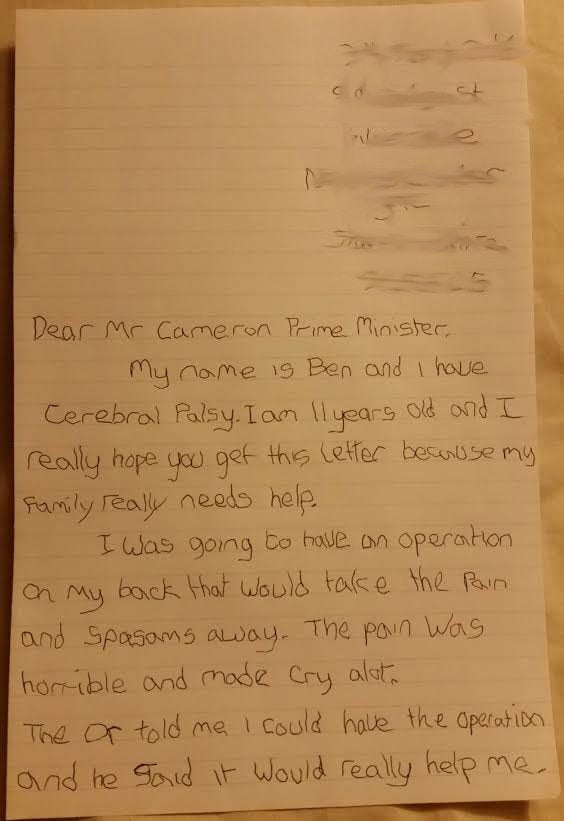 Dear Mr Cameron Prime Minister.
My name is Ben and I have
Cerebral Palsy. I am 11 years old and I
really hope you get this letter because my
family really needs help.
I was going to have an operation
on my back that would take the Pain
and Spasams away. The pain was
horrible and made Cry alot.
The Dr told me I could have the operation
and he Said it would really help me.